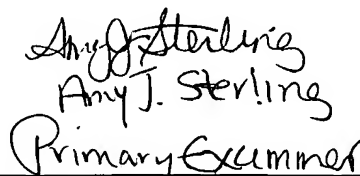 Amy J. Sterling
Amy J. Sterling
Primary Examiner